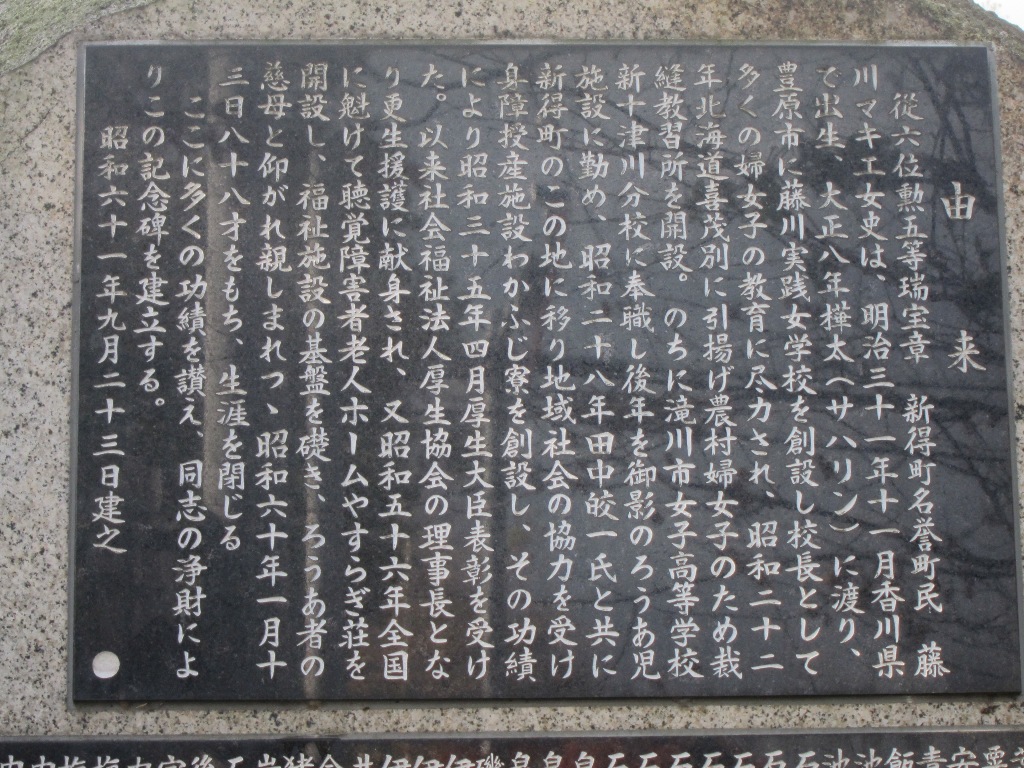 由来
從六位勲五等瑞宝章　新得町名誉町民　藤
川マキエ女史は、明治三十一年十一月香川県
で出生、大正八年樺太（サハリン）に渡り、
豊原市に藤川実践女学校を創設し校長として
多くの婦女子の教育に尽力され、昭和二十二
年北海道喜茂別に引揚げ農村婦女子のため裁
縫教習所を開設。のちに滝川市女子高等学校
新十津川分校に奉職し後年を御影のろうあ児
施設に勤め　昭和二十八年田中皎一氏と共に
新得町のこの地に移り地域社会の協力を受け
身障授産施設わかふじ寮を創設し、その功績
により昭和三十五年四月厚生大臣表彰を受け
た。以来社会福祉法人厚生協会の理事長とな
り更生援護に献身され、又昭和五十六年全国
に魁けて聴覚障害者老人ホームやすらぎ荘を
開設し、福祉施設の基盤を礎き、ろうあ者の
慈母と仰がれ親しまれつゝ昭和六十年一月十
三日八十八才をもち、生涯を閉じる
ここに多くの功績を讃え　同志の浄財によ
りこの記念碑を建立する。
昭和六十一年九月二十三日建之